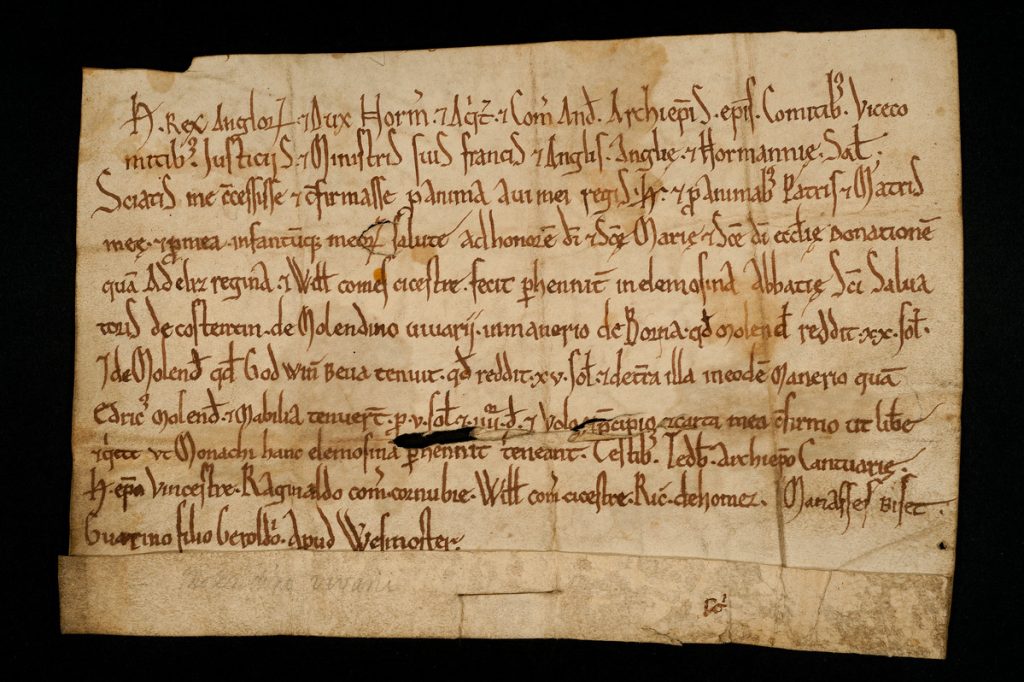 H. Rex Anglor̅. ⁊ Dux Norm̅. ⁊ Aq̅t̅. ⁊ Com̅ And̅. Archiep̅is. ep̅is. Comitib᷒. Viceco
mitib᷒. Justiciis. ⁊ Ministris suis francis ⁊ Anglis. Anglię. ⁊ Normannię. Sal̅.
Sciatis me c̅cessisse ⁊ c̅firmasse p̱ anima aui mei regis. H. ⁊ p̱ animab᷒ Patris ⁊ Matris
meę. ⁊ p̱ mea. infantu̅q; meor̅ salute ad honore̅ di̅ ⁊ sc̅ę Marię ⁊ sc̅e di̅ eccl̅ię Donatione̅
qua̅ Adeliz regina. ⁊ Will̅ comes cicestre. fecit p̱hennit̅ in elemosina̅ Abbatię Sc̅i Salua
toris de costentin. de Molendino uiuarij. in manerio de Borna. qd̅ molend̅ reddit. xx. sol̅.
⁊ de Molend̅ qd̅ Godwin̅ Beua tenuit. qd̅ reddit. xv. sol̅. ⁊ de t̅ra illa in eode̅ Manerio qua̅
Edric᷒ Molend̅. ⁊ Mabilia tenuer̅t. p̱. v. sol̅. ⁊. iiii. d̅. ⁊ Volo. ⁊ p̅cipio. ⁊ carta mea c̅firmo ut lib̅e
⁊ q̅ete ut Monachi hanc elemosina̅ p̱hennit̅ teneant. Testib᷒. Tedb̅. Archiep̅o Cantuarię.
H. ep̅o Vincestre. Raginaldo com̅. cornubie. Will̅ com̅. cicestre. Ric̅. de homez. Manasses Biset.
Guarino filio Geroldi. Apud Wesmoster.